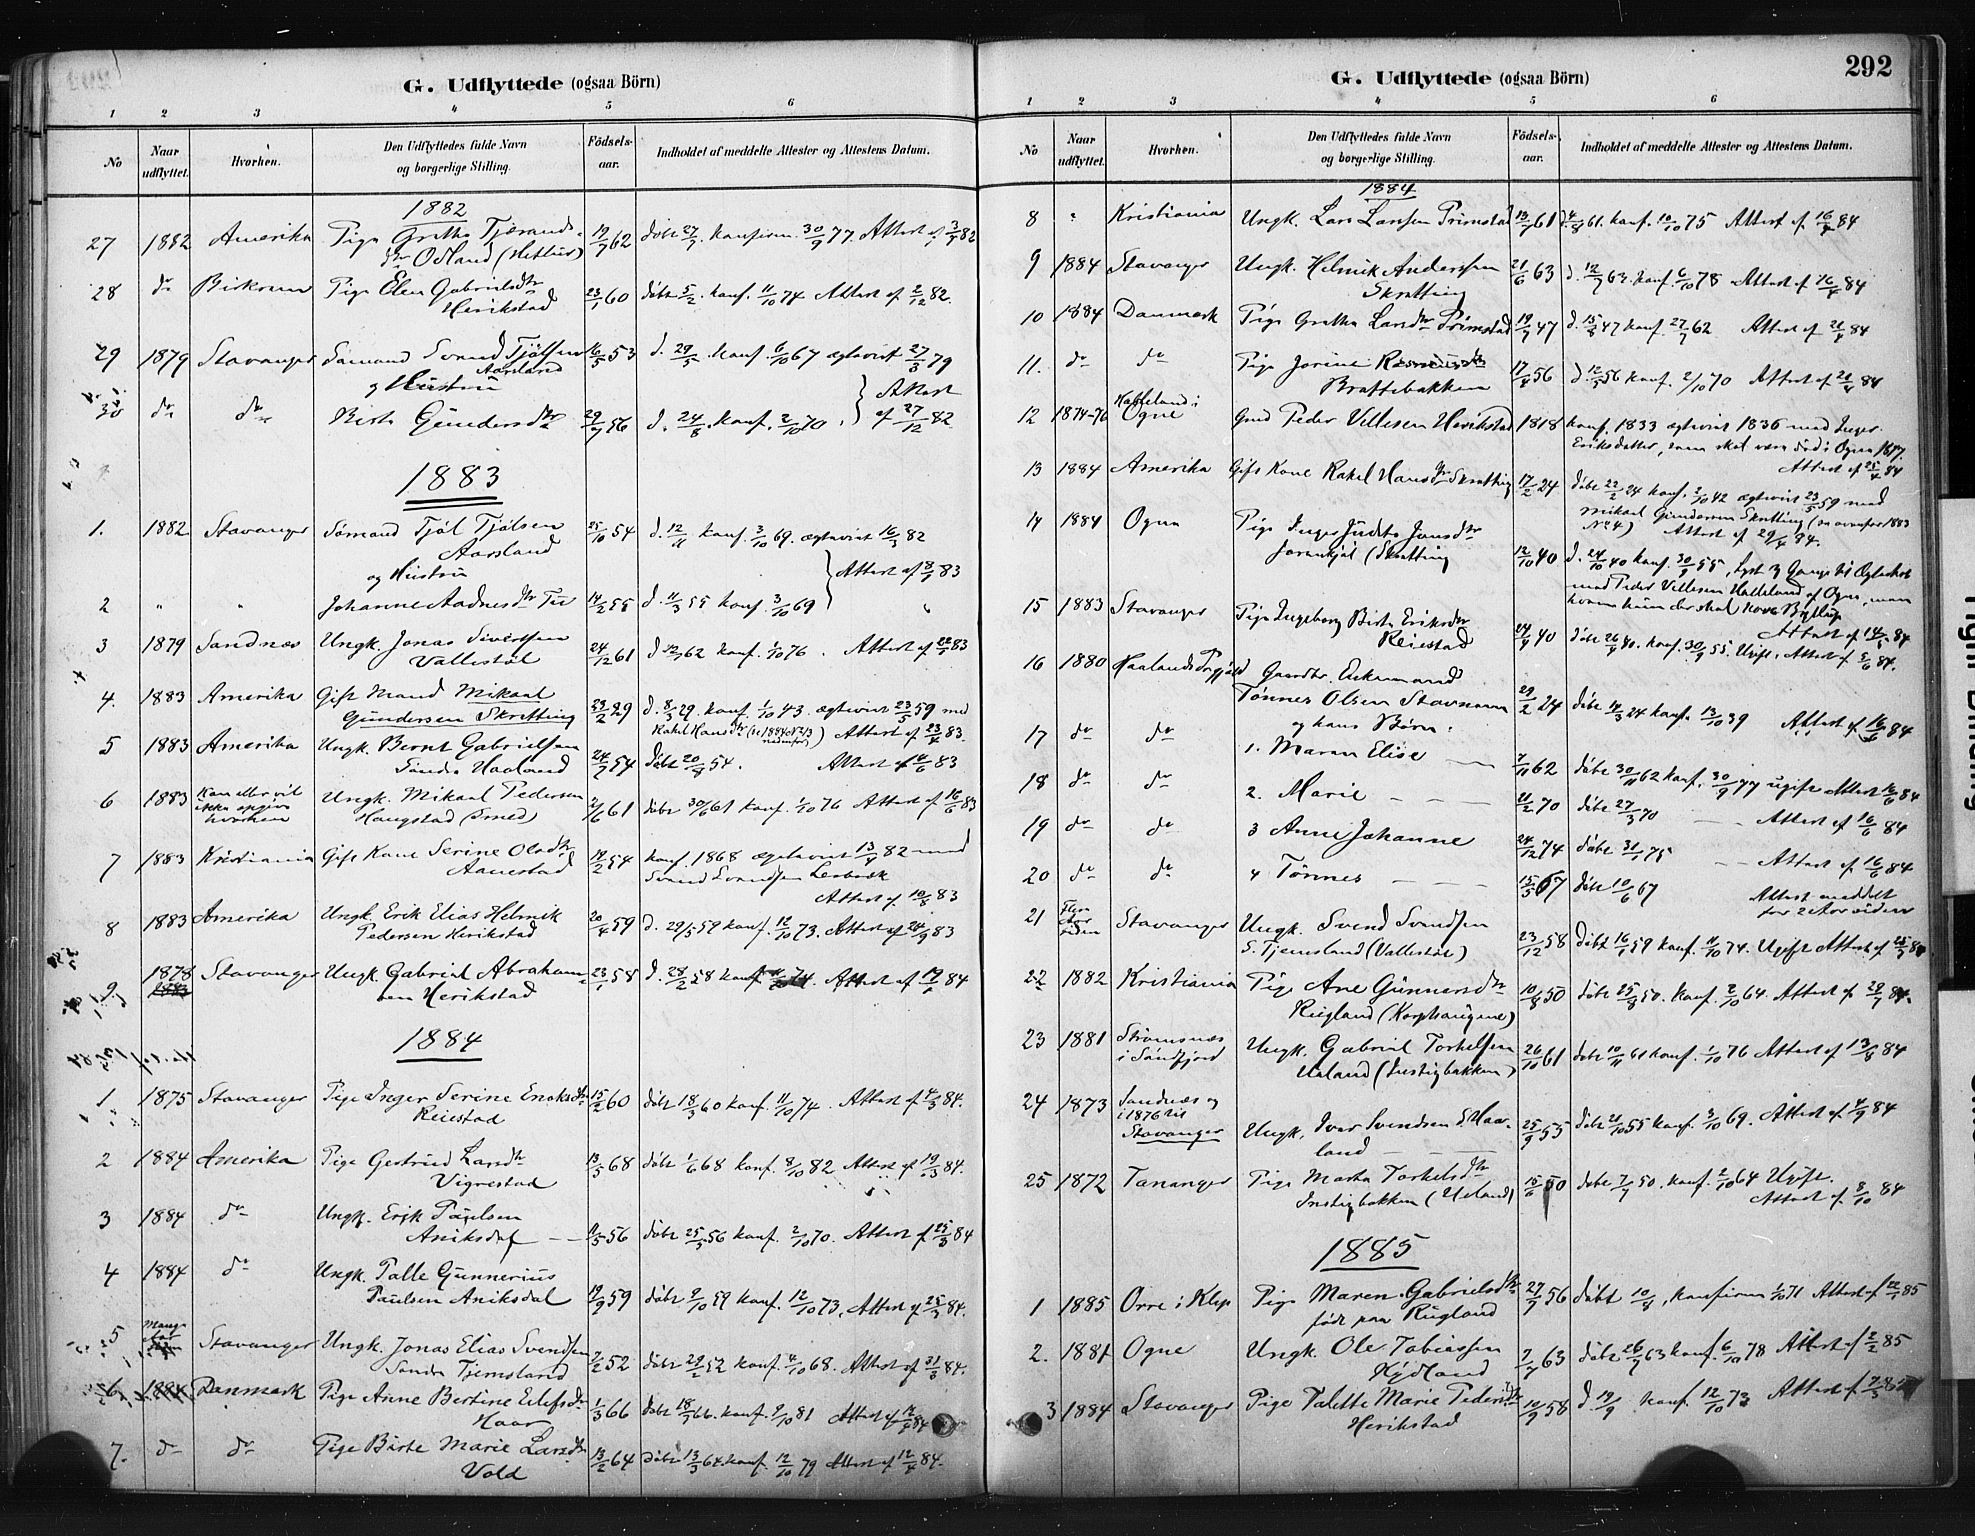 G. Udflyttede (ogsaa Börn)
1 2 3 4 5 6
No Naar udflyttet. Hvorhen. Den Udflyttedes fulde Navn og borgerlige Stilling. Födsels-aar. Indholdet af meddelte Attester og Attestens Datum.
1882
27 1882 Amerika Pige Grethe Tjærands- 19/7 62 döbt 27/7. konfirm. 30/9 77. Attest af 3/7 82
dtr Odland (Hettur)
28 do Birkrem Pige Elen Gabrielsdtr 23/1 60 döbt 5/2. konf. 11/10 74 Attest af 2/12 82.
Herikstad
29 1879 Stavanger Sömand Svend Tjölsen 16/5 53 d. 29/5. konf. 6/10 67 ægteviet 27/3 79
Aarsland
og Hustru
30 do do Birte Gundersdtr 29/7 56 d. 24/8. konf. 2/10 70. Attest af 27/12 82.
1883
1. 1882 Stavanger Sömand Tjöl Tjölsen 25/10 54 d. 12/11 konf. 3/10 69. ægteviet 16/3 82
Aarsland
og Hustru Attest af 8/1 83
2 " " Johanne Aadnesdtr Tu 14/2 55 d. 11/3 55 konf. 3/10 69 "
3 1879 Sandnæs Ungk. Jonas Sivertsen 24/12 61 d. 12/1 62 konf. 1/10 76. Attest af 22/1 83
Vallestöl
4. 1883 Amerika Gift Mand Mikael 23/2 29 d. 8/3 29. konf. 1/10 43. ægteviet 23/5 59 med
Gundersen Skretting Rakel Hansdtr (se 1884 No 13 nedenfor) Attest af 23/4 83.
5 1883 Amerika Ungk. Bernt Gabrielsen 24/7 54 döbt 20/8 54. Attest af 4/6 83
Söndre Haaland
6 1883 Kan eller vil ikke opgive hvorhen Ungk. Mikael Pedersen 2/6 61 döbt 30/6 61 konf. 1/10 76 Attest af 16/6 83
Haugstad
7 1883 Kristiania Gift Kone Serine Olsdtr 19/2 54 konf. 1868 ægteviet 13/4 82 med
Aanestad Svend Svendsen Lerbræk
Attest af 10/8 83
8 1883 Amerika Ungk. Erik Elias Helmik 20/4 59 d. 29/5 59 konf. 12/10 73. Attest af 24/9 83
Pedersen Herikstad
9 1878 Stavanger Ungk. Gabriel Abraham- 23/1 58 d. 28/2 58 konf. 74. Attest af 19/1 84
sen Herikstad
1884
1 1875 Stavanger Pige Inger Serine Enoksdtr 15/2 60 döbt 18/3 60 konf. 11/10 74. Attest af 4/3 84.
Reiestad
2 1884 Amerika Pige Gertrud Larsdtr 13/5 68 döbt 1/6 68 konf. 8/10 82 Attest af 19/3 84.
Vigrestad
3 1884 do Ungk. Erik Paulsen
Aniksdal 11/5 56 döbt 25/5 56 konf. 2/10 70. Attest af 25/3 84
4 1884 do Ungk. Palle Gunnerius
Paulsen Aniksdal 19/9 59 döbt 9/10 59 konf. 12/10 73. Attest af 25/3 84.
5 Mange Aar siden Stavanger Ungk. Jonas Elias Svendsen 7/2 52 döbt 29/2 52 konf. 4/10 68. Attest af 31/3 84.
Söndre Tjemsland
6 1884 Danmark Pige Anne Bertine Eilefsdtr 1/3 66 döbt 18/3 66. konf. 9/10 81 Attest af 84
Haar
7. do do Pige Birte Marie Larsdtr 13/2 64 döbt 13/3 64. konf. 12/10 79 Attest af 12/4 84.
Vold
G. Udflyttede (ogsaa Börn)
292
1 2 3 4 5 6
No Naar udflyttet. Hvorhen. Den Udflyttedes fulde Navn og borgerlige Stilling. Födsels-aar. Indholdet af meddelte Attester og Attestens Datum.
1884
8 " Kristiania Ungk. Lars Larsen Primstad 19/7 61 d. 4/8 61. konf. 10/10 75 Attest af 16/4 84
9 1884 Stavanger Ungk. Helmik Andersen 21/6 63 d. 12/7 63. konf. 6/10 78 Attest af 16/4 84
Skretting
10 1884 Danmark Pige Grethe Larsdtr Primstad 19/7 47 d. 15/8 47 konf. 27/7 62 Attest af 21/4 84
11. do do Pige Jorine Rasmusdtr 17/4 56 d. 12/5 56 konf. 2/10 70 Attest af 21/4 84
Brattebakken
12 1874-76 Hatteland i Ogne Gmd Peder Villesen Herikstad 1818 konf. 1833 ægteviet 1836 med Inger
Eriksdatter, som skal være död i Ogne 1877.
Attest af 25/4 84
13 1884 Amerika Gift Kone Rakel Hansdtr Skretting 17/2 24 döbt 22/2 24 konf. 2/10 42 ægteviet 23/5 59 med
Mikael Gundersen Skretting (se ovenfor 1883
No 4) Attest af 29/4 84.
14 1884 Ogne Pige Inger Judite Jonsdtr
Skretting 12/10 40 d. 24/10 40 konf. 30/9 55, lyst 3 Gange til Ægteskab
med Peder Villesen Hatteland af Ogne, men
hvem hun der skal have Bryllup
Attest af 14/5 84
15 1883 Stavanger Pige Ingeborg Birte Eriksdtr 24/9 40 döbt 26/9 40. konf. 30/9 55. Ugift. Attest af 5/6 84.
Reiestad
16 1880 Haalands Prgjæld Gaardbr. Enkemand
Tönnes Olsen Stavnem 29/2 24 döbt 14/3 24 konf. 13/10 39 Attest af 16/6 84
og hans Börn:
17 do do 1. Maren Elise 7/11 62 döbt 30/11 62 konf. 30/9 77 ugift Attest 16/6 84
18 do do 2. Marie 21/2 70 döbt 27/3 70 Attest af 16/6 84
19 do do 3 Anne Johanne 24/12 74 döbt 31/1 75 Attest af 16/6 84
20 do do 4 Tönnes 15/5 67 döbt 10/6 67 Attest meddelt
for 2 Aar siden
21 Flere Aar siden Stavanger Ungk. Svend Svendsen
S. Tjemsland (Vallestöl) 23/12 58 döbt 16/1 59 konf. 11/10 74. Ugift Attest af 25/
22 1882 Kristiania Pige Ane Gunnersdtr 10/8 50 döbt 25/8 50. konf. 2/10 64. Attest af 29/7 84.
Rugland (Korphaugene)
23 1881 Strömsnæs i Söndfjord Ungk. Gabriel Torkelsen 26/10 61 döbt 10/11 61 konf. 1/10 76 Attest af 13/8 84
Ueland (Instigbakken)
24 1873 Sandnæs og i 1876 til Stavanger Ungk. Iver Svendsen S Haa- 25/9 55 döbt 21/10 55 konf. 3/10 69. Attest af 4/9 84
land
25 1872 Tananger Pige Marta Torkelsdtr 15/6 50 döbt 7/7 50. konf. 2/10 64 Ugift.
Instigbakken (Ueland) Attest af 8/10 84
1885
1 1885 Orre i Klep Pige Maren Gabrielsdtr 27/7 56 döbt 10/8, konfirm 1/10 71 Attest af 22/1 85
födt paa Rugland
2. 1881 Ogne Ungk. Ole Tobiassen 7/7 63 döbt 26/7 63 konf. 6/10 78 Attest af 2/2 85
Hydland
3 1884 Stavanger Pige Talette Marie Pedersdtr 10/9 58 d. 19/9 konf. 12/10 73 Attest af 7/3 85
Herikstad